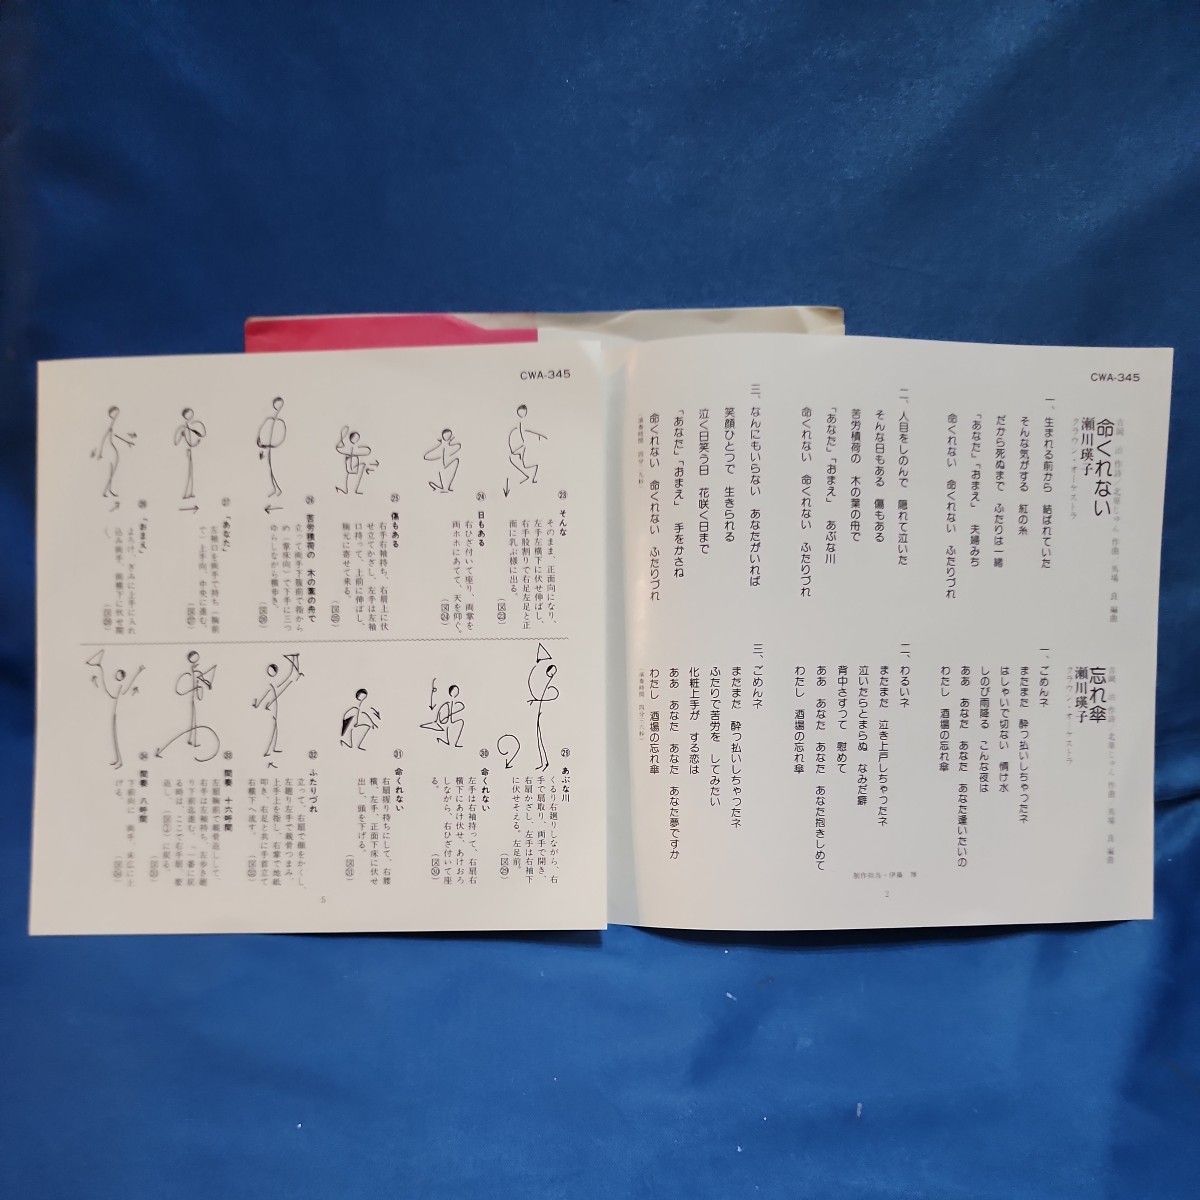 CWA-345
命くれない
瀬川瑛子
クラウン・オーケストラ
一、生まれる前から 結ばれていた
そんな気がする 紅の糸
だから死ぬまで ふたりは一緒
「あなた」「おまえ」 夫婦みち
命くれない 命くれない ふたりづれ
二、人目をしのんで 隠れて泣いた
そんな日もある 傷もある
苦労積荷の 木の葉の舟で
「あなた」「おまえ」 あぶな川
命くれない 命くれない ふたりづれ
三、なんにもいらない あなたがいれば
笑顔ひとつで 生きられる
泣く日笑う日 花咲く日まで
「あなた」「おまえ」 手をかさね
命くれない 命くれない ふたりづれ
忘れ傘
瀬川瑛子
クラウン・オーケストラ
一、ごめんネ
またまた 酔っ払いしちゃったネ
はしゃいで切ない 情け水
しのび雨降る こんな夜は
ああ あなた あなた あなた逢いたいの
わたし 酒場の忘れ傘
二、わるいネ
またまた 泣き上戸しちゃったネ
泣いたらとまらぬ なみだ癖
背中さすって 慰めて
ああ あなた あなた あなた抱きしめて
わたし 酒場の忘れ傘
三、ごめんネ
またまた 酔っ払いしちゃったネ
ふたりで苦労を してみたい
化粧上手が する恋は
ああ あなた あなた あなた夢ですか
わたし 酒場の忘れ傘
制作担当・伊藤 博
2
CWA-345
㉓ そんな
そのまま、正面向になり、
左手左横下に伏せ伸ばし、
右手股割りで右足左足と正
面に乳ぶ様に出る。
(図㉓)
㉔ 日もある
右ひざ付いて座り、両掌を
両ホホにあてて、天を仰ぐ。
(図㉔)
㉕ 傷もある
右手右袖持ち、右肩上に伏
せ立てかざし、左手は左袖
口持って、上前に伸ばし、
胸元に寄せて来る。
(図㉕)
㉖ 苦労積荷の 木の葉の舟で
立って両手下腹前で指から
め(掌床向)で下手に三つ
ゆらしながら横歩き。
(図㉖)
㉗ 「あなた」
左袖口を両手で持ち(胸前
で)上手向、中央に進む。
(図㉗)
㉘ 「おまえ」
よろけ、ぎみに上手に入れ
込み両手、両横下に伏せ開
く。
(図㉘)
㉙ あぶな川
くるり右廻りしながら、右
手で扇取り、両手で開き、
右扇かざし、左手は右袖下
に伏せそえる。左足前。
(図㉙)
㉚ 命くれない
左手は右袖持って、右扇右
横下にあけ伏せ、あけおろ
しながら、右ひざ付いて座
る。
(図㉚)
㉛ 命くれない
右扇握り持ちにして、右腰
横、左手、正面下床に伏せ
出し、頭を下げる。
(図㉛)
㉜ ふたりづれ
立って、右扇で顔をかくし、
左廻り左手で親骨つまみ、
上手上を指し、右掌で地紙
叩き、右足と共に手首立て
右横下へ流す。
(図㉜)
㉝ 間奏 十六呼間
左扇胸前で親骨返しして、
右手は左袖持ち、左歩き廻
り下前迄進む。「一番に戻
る時は、ここで右手扇、要
返し、
に戻る。
(図㉝)
㉞ 間奏 八呼間
下前向に 両手、末広に上
げる。
(図㉞)
5